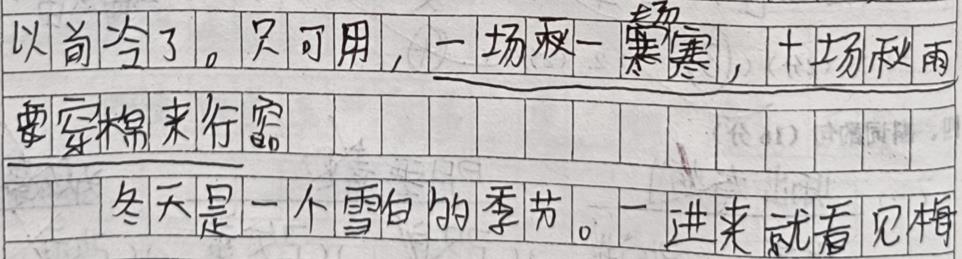 以前冷了。只可用,一场秋一场寒,十场秋雨
要穿棉来行容
冬天是一个雪白的季节。一进来就看见梅